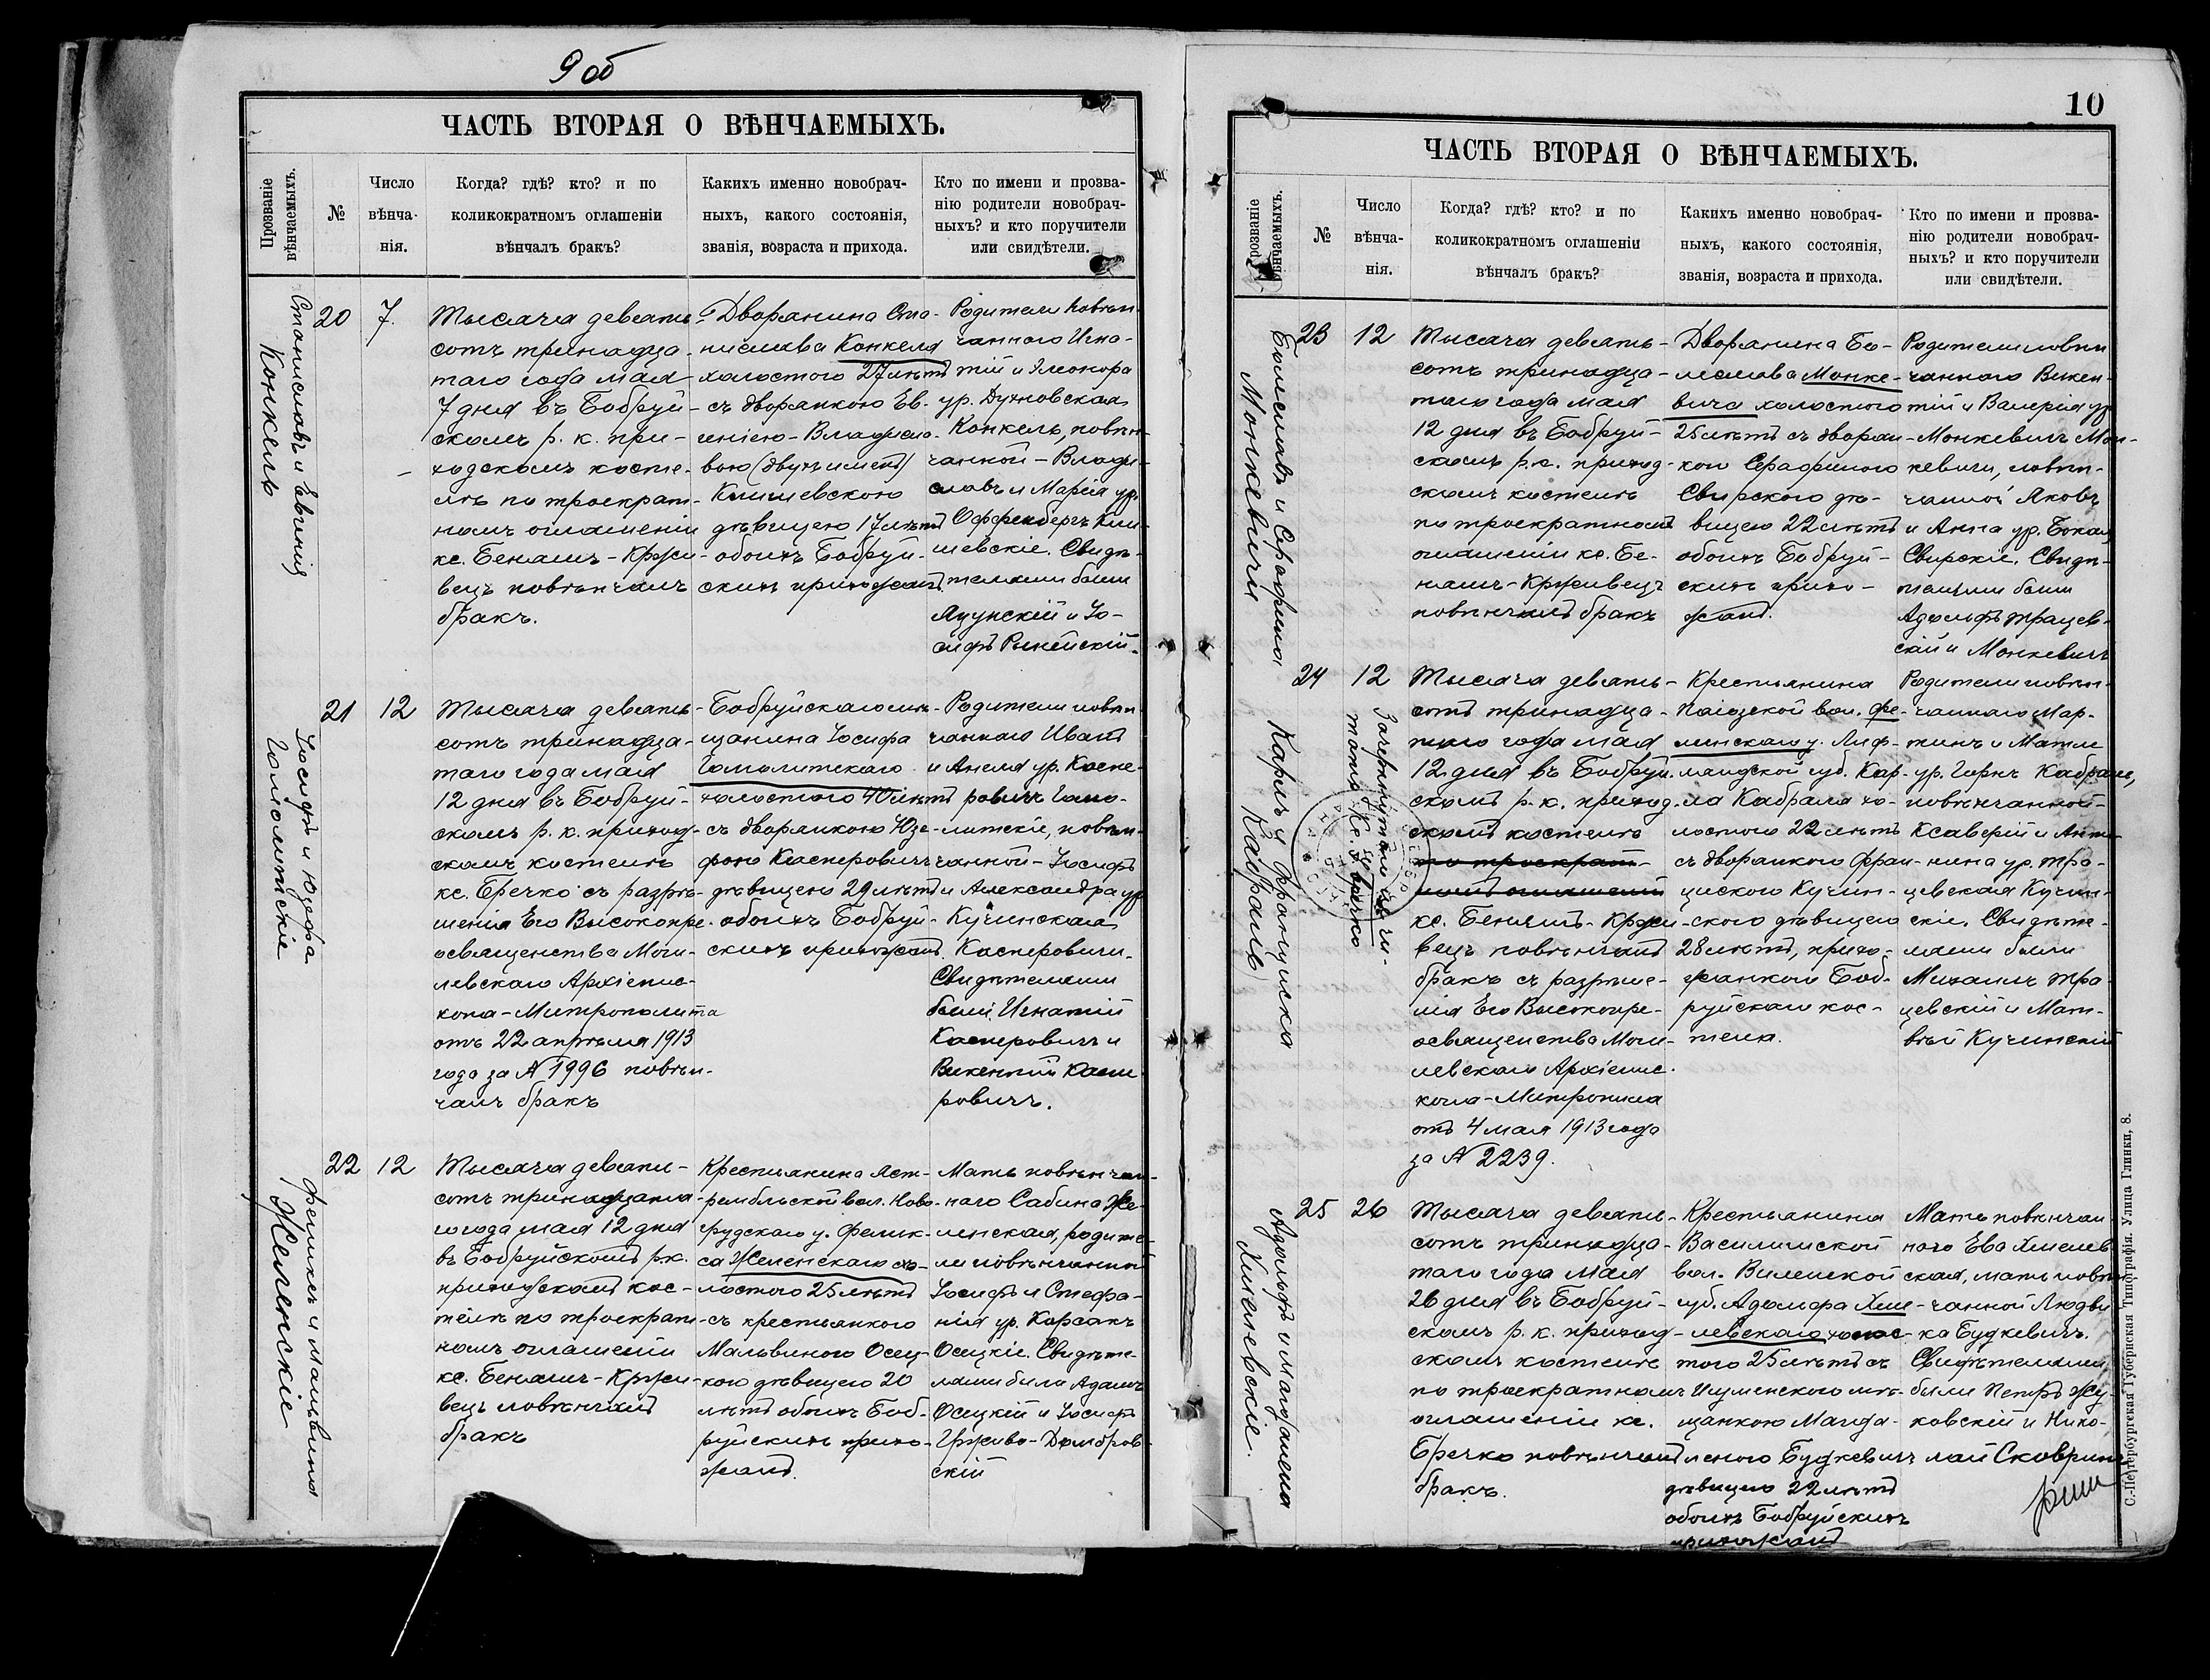 9 об
ЧАСТЬ ВТОРАЯ О ВѢНЧАЕМЫХЪ.
Прозваніе
вѣнчаемыхъ.
№
Число
вѣнча-
нія.
Когда? гдѣ? кто? и по
коликократномъ оглашеніи
вѣнчалъ бракъ?
Какихъ именно новобрач-
ныхъ, какого состоянія,
званія, возраста и прихода.
Кто по имени и прозва-
нію родители новобрач-
ныхъ? и кто поручители
или свидѣтели.
Станиславъ и Евгенія
Конкель
20
7.
Тысяча девять-
сотъ тринадца-
таго года мая
7 дня въ Бобруй-
скомъ р. к. при-
ходскомъ косте-
лѣ по троекрат-
номъ оглашеніи
кс. Беньямъ-Кржи-
вецъ повѣнчалъ
бракъ.
Дворянина Ста-
нислава Конкеля
холостого 27 лѣтъ
съ дворянкою Ев-
геніею-Владисла-
вою (двухъ именъ)
Климевскою
дѣвицею 17 лѣтъ
обоихъ Бобруй-
скихъ прихожанъ.
Родители повѣн-
чаннаго Игна-
тій и Элеонора
ур. Духновская
Конкель, повѣн-
чанной - Влади-
славъ и Марія ур.
Оффенбергъ Кли-
мевскіе. Свидѣ-
телями были
Яцунскій и Іо-
сифъ Рынейскій.
Іосифъ и Юзефа
Гомолитскіе
21
12
Тысяча девять-
сотъ тринадца-
таго года мая
12 дня въ Бобруй-
скомъ р. к. приход-
скомъ костелѣ
кс. Гречко съ разрѣ-
шенія Его Высокопре-
освященства Моги-
левскаго Архіепис-
копа-Митрополита
отъ 22 апрѣля 1913
года за № 1996 повѣн-
чалъ бракъ
Бобруйскаго мѣ-
щанина Іосифа
Гомолитскаго
холостого 40 лѣтъ
съ дворянкою Юзе-
фою Касперовичъ
дѣвицею 29 лѣтъ
обоихъ Бобруй-
скихъ прихожанъ.
Родители повѣн-
чаннаго Иванъ
и Анеля ур. Каспе-
ровичъ Гомо-
литскіе, повѣн-
чанной - Іосифъ
и Александра ур.
Кучинская
Касперовичи.
Свидѣтелями
были Игнатій
Касперовичъ и
Викентій Каспе-
ровичъ.
Феликсъ и Мальвина
Желенскіе
22
12
Тысяча девять-
сотъ тринадцата-
го года мая 12 дня
въ Бобруйскомъ р. к.
приходскомъ кос-
телѣ по троекрат-
номъ оглашеніи
кс. Беньямъ-Кржи-
вецъ повѣнчалъ
бракъ
Крестьянина Яст-
рембльской вол. Ново-
грудскаго у. Фелик-
са Желенскаго хо-
лостого 25 лѣтъ
съ крестьянкою
Мальвиною Осец-
кою дѣвицею 20
лѣтъ обоихъ Боб-
руйскихъ прихо-
жанъ.
Мать повѣнчан-
наго Сабина Же-
ленская, родите-
ли повѣнчанной
Іосифъ и Стефа-
нія ур. Корсакъ
Осецкіе. Свидѣте-
лями были Адамъ
Осецкій и Іосифъ
Гржива-Домбров-
скій
10
ЧАСТЬ ВТОРАЯ О ВѢНЧАЕМЫХЪ.
Прозваніе
вѣнчаемыхъ.
№
Число
вѣнча-
нія.
Когда? гдѣ? кто? и по
коликократномъ оглашеніи
вѣнчалъ бракъ?
Какихъ именно новобрач-
ныхъ, какого состоянія,
званія, возраста и прихода.
Кто по имени и прозва-
нію родители новобрач-
ныхъ? и кто поручители
или свидѣтели.
Болеславъ и Серафина
Монкевичи
23
12
Тысяча девять-
сотъ тринадца-
таго года мая
12 дня въ Бобруй-
скомъ р. к. приход-
скомъ костелѣ
по троекратномъ
оглашеніи кс. Бе-
ньямъ-Крживецъ
повѣнчалъ бракъ
Дворянина Бо-
леслава Монке-
вича холостого
25 лѣтъ съ дворян-
кою Серафиною
Свирскою дѣ-
вицею 22 лѣтъ
обоихъ Бобруй-
скихъ прихо-
жанъ.
Родители повѣн
чаннаго Викен-
тій и Валерія ур.
Монкевичъ Мон-
кевичи, повѣн-
чанной Яковъ
и Анна ур. Бокал
Свирскіе. Свидѣ-
телями были
Адольфъ Трацев-
скій и Монкевичъ
Карлъ и Франциска
Кабраль
24
12
Зачеркнутое не чи-
тать. Кс. Гречко
Тысяча девять-
сотъ тринадца-
таго года мая
12 дня въ Бобруй-
скомъ р. к. приход-
скомъ костелѣ
по троекрат-
номъ оглашеніи
кс. Беньямъ-Кржи-
вецъ повѣнчалъ
бракъ съ разрѣше-
нія Его Высокопре-
освященства Моги-
левскаго Архіепис-
копа-Митрополита
отъ 4 мая 1913 года
за № 2239.
Крестьянина
вол. Фе-
линскаго у. Лиф-
ляндской губ. Кар-
ла Кабраля хо-
лостого 22 лѣтъ
съ дворянкою Фран-
цискою Кучин-
скою дѣвицею
28 лѣтъ, прихо-
жанкой Боб-
руйскаго кос-
тела.
Родители повѣн-
чаннаго Мар-
тинъ и Матле
ур. Горнъ Кабрали,
повѣнчанной-
Ксаверій и Анто-
нина ур. Тра-
цевская Кучин-
скіе. Свидѣте-
лями были
Михаилъ Тра-
цевскій и Мат-
вѣй Кучинскій
Адольфъ и Магдалена
Хмелевскіе.
25
26
Тысяча девять-
сотъ тринадца-
таго года мая
26 дня въ Бобруй-
скомъ р. к. приход-
скомъ костелѣ
по троекратномъ
оглашеніи кс.
Гречко повѣнчалъ
бракъ.
Крестьянина
Василишской
вол. Виленской
губ. Адольфа Хме-
левскаго холос-
того 25 лѣтъ съ
Игуменскою мѣ-
щанкою Магда-
леною Будкевичъ
дѣвицею 22 лѣтъ
обоихъ Бобруйскихъ
прихожанъ
Мать повѣнчан
наго Ева Хмелев
ская, мать повѣн
чанной Людви
ка Будкевичъ.
Свидѣтелями
были Петръ Жу-
ковскій и Нико-
лай Сковрин-
С.-Петербургская Губернская Типографія. Улица Глинки, 8.